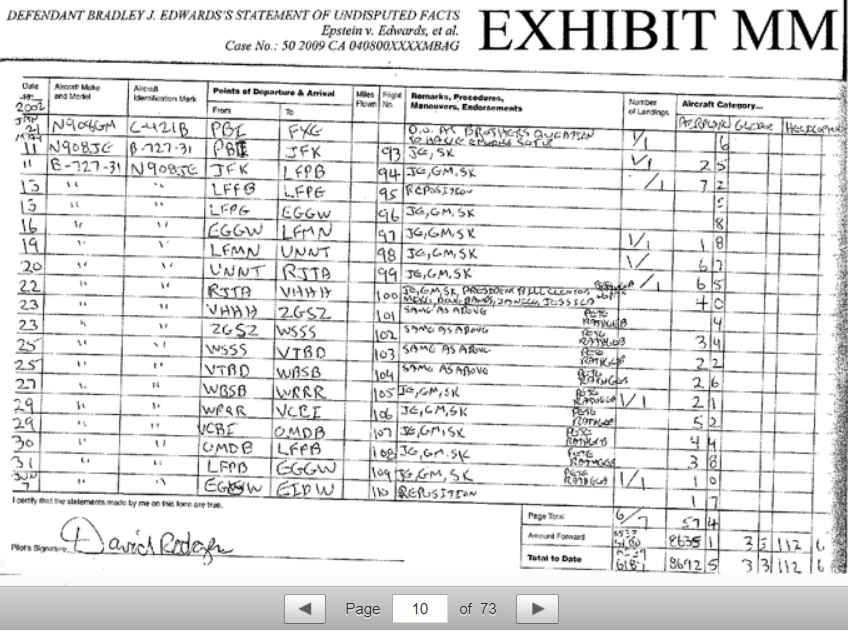 DEFENDANT BRADLEY J. EDWARDS'S STATEMENT OF UNDISPUTED FACTS
Epstein v. Edwards, et al.
Case No.: 50 2009 CA 040800XXXXMBAG
EXHIBIT MM
Date Aircraft Make and Model Aircraft Identification Mark Points of Departure & Arrival Miles Flown Flight No. Remarks, Procedures, Maneuvers, Endorsements Number of Landings Aircraft Category...
2002 From To AIRPLANE GLIDER HELICOPTER
21 N908GM C-421B PBI FXE 1/1 6
11 N908JE B-727-31 PBI JFK 93 JE, SK 1/1 2 5
11 B-727-31 N908JE JFK LFPB 94 JE, GM, SK /1 7 2
13 " " LFPB LFPG 95 REPOSITION
15 " " LFPG EGGW 96 JE, GM, SK 8
16 " " EGGW LFMN 97 JE, GM, SK 1/1 1 8
19 " " LFMN UNNT 98 JE, GM, SK 1/ 6 7
20 " " UNNT RJTA 99 JE, GM, SK /1 6 5
22 " " RJTA VHHH 100 JE, GM, SK, PRESIDENT BILL CLINTON 4 0
23 " " VHHH ZGSZ 101 SAME AS ABOVE PETE 4
23 " " ZGSZ WSSS 102 SAME AS ABOVE PETE 3 4
25 " " WSSS VTBD 103 SAME AS ABOVE PETE 2 2
25 " " VTBD WBSB 104 SAME AS ABOVE PETE 2 6
27 " " WBSB WRRR 105 JE, GM, SK PETE 1/1 2 1
29 " " WRRR VCBI 106 JE, GM, SK PETE 5 2
29 " " VCBI OMDB 107 JE, GM, SK PETE 4 4
30 " " OMDB LFPB 108 JE, GM, SK PETE 3 8
31 " " LFPB EGGW 109 JE, GM, SK PETE 1/1 1 0
JUN 7 " " EGGW EIDW 110 REPOSITION 1 7
I certify that the statements made by me on this form are true.
Pilot's Signature David Rodgers
Page Total 6/7 57 4
Amount Forward 8635 1 3 5 112 6
Total to Date 8692 5 3 3 112 6
Page 10 of 73